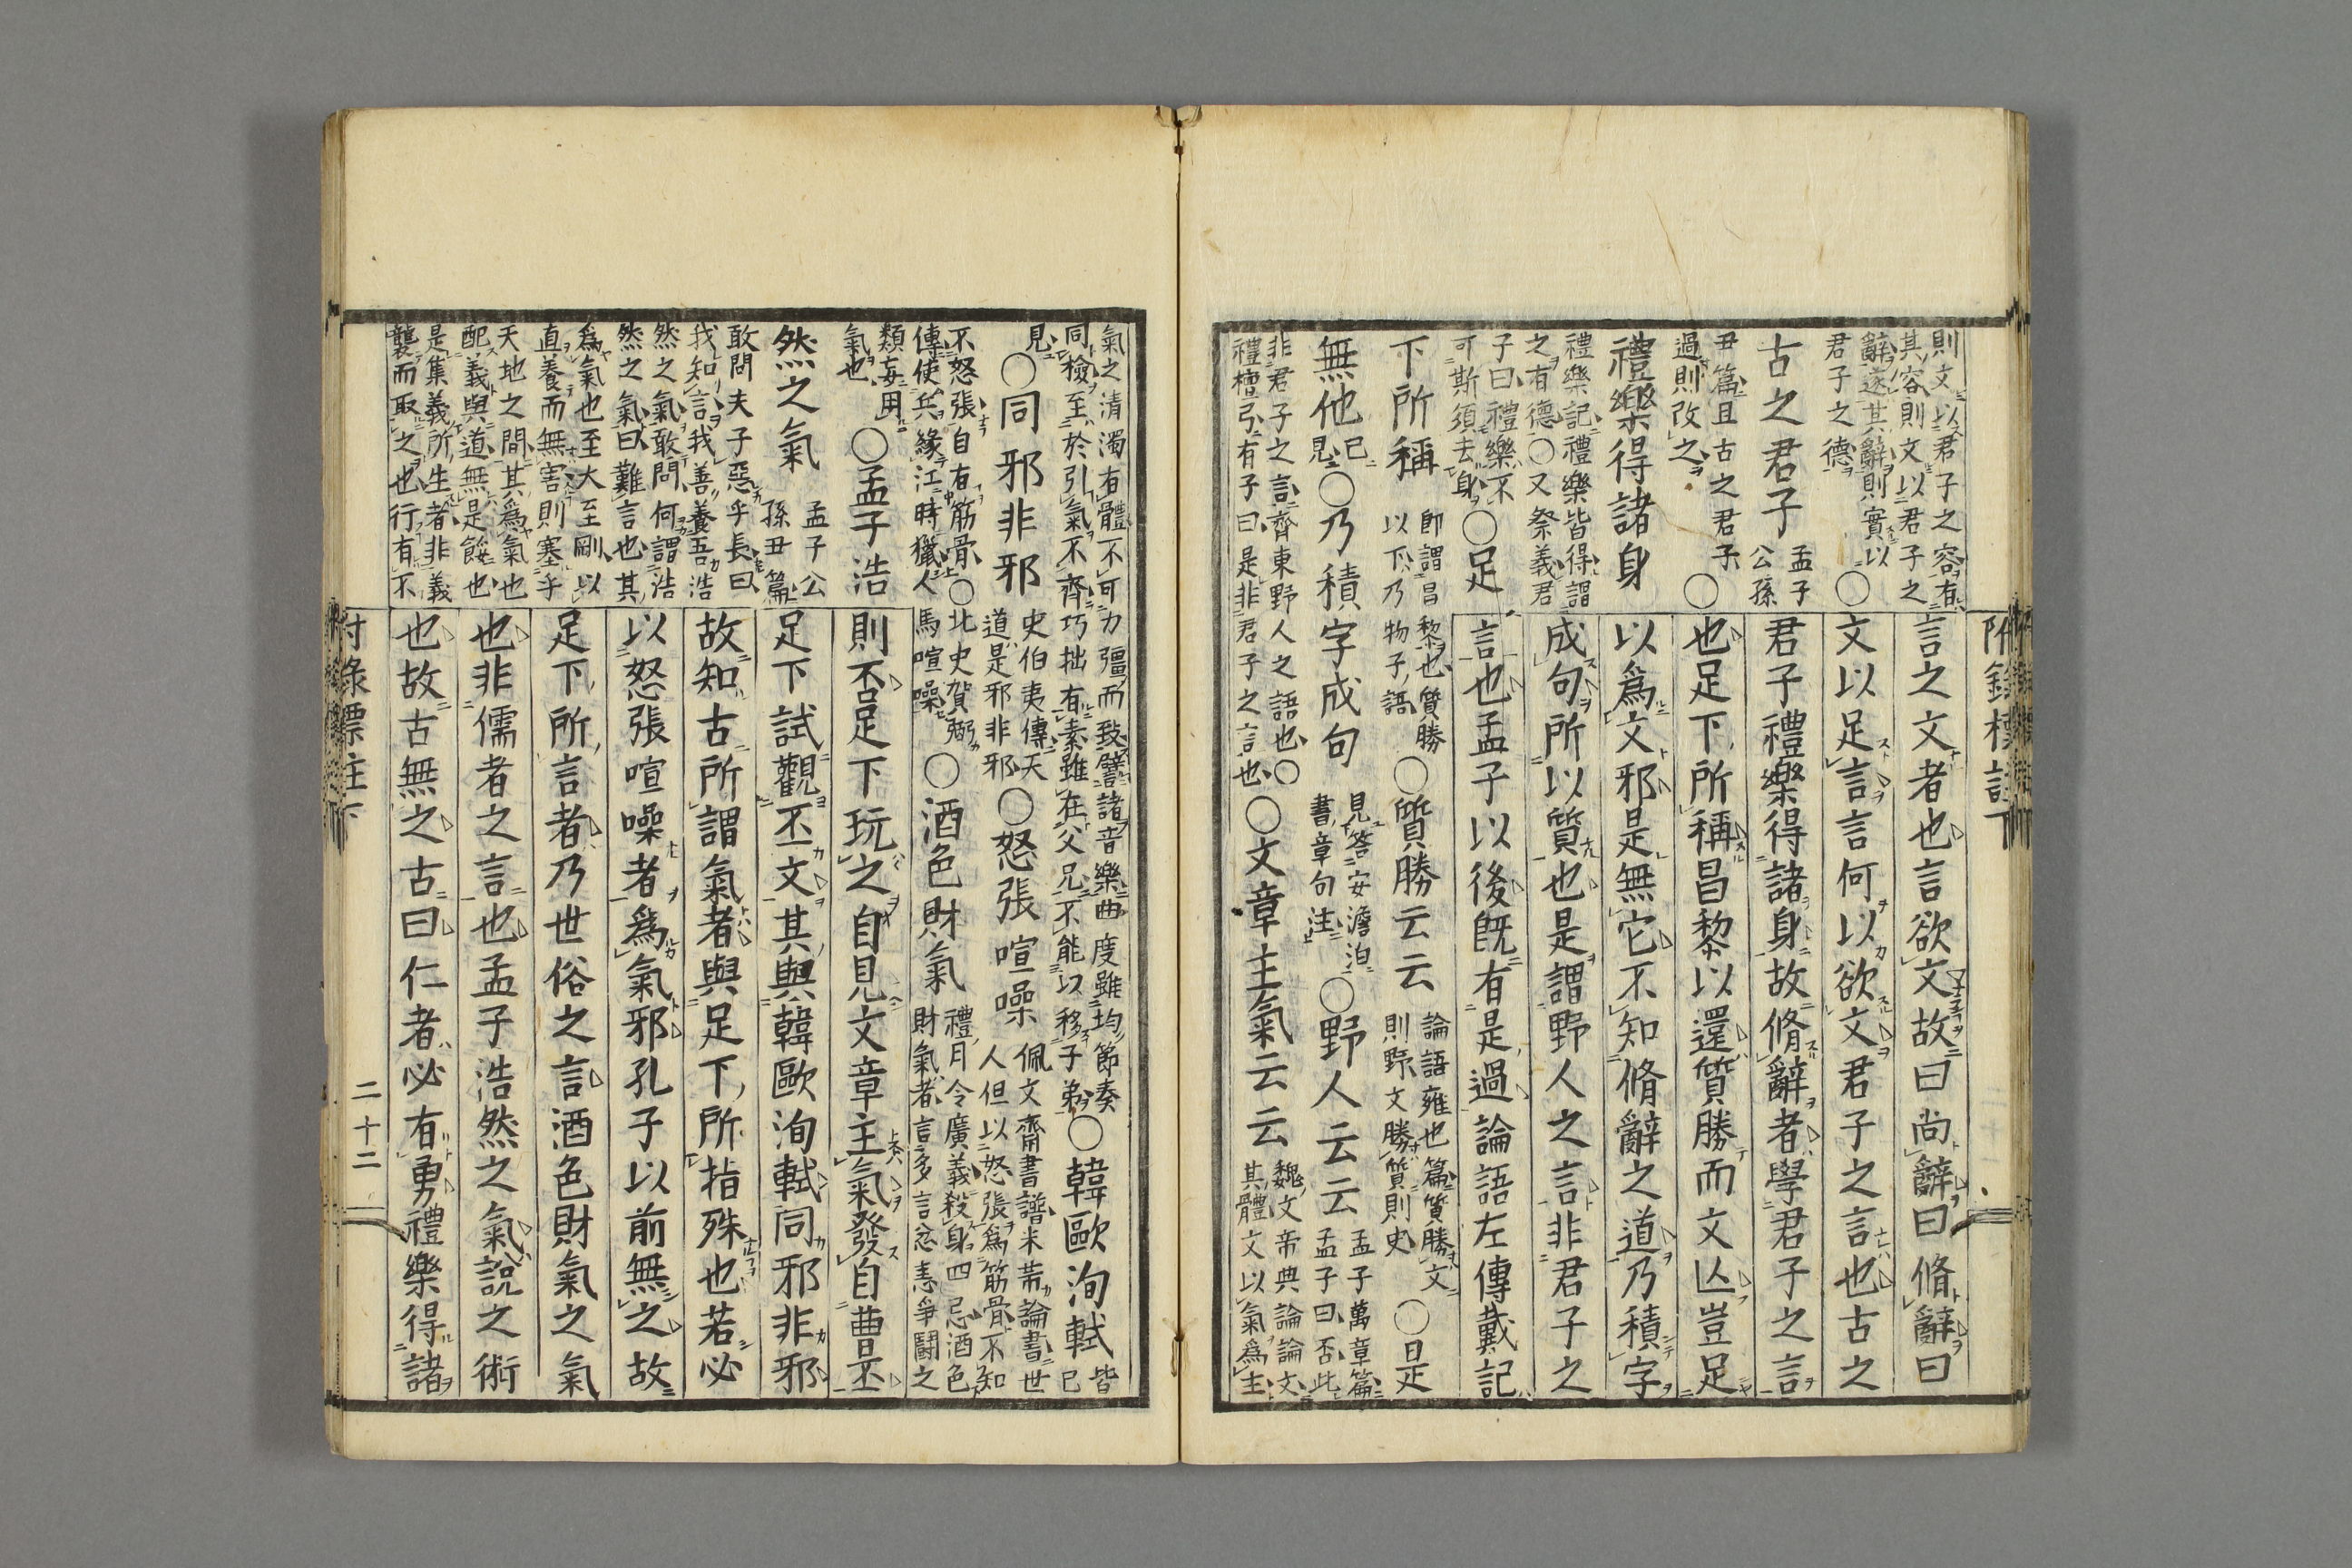 附錄標註下
則文以君子之容有
其容則文以君子之
辭遂其辭則實以
君子之德 ○
古之君子 孟子
公孫
丑篇且古之君子
過則改之 ○
禮樂得諸身
禮樂記禮樂皆得謂
之有德○又祭義君
子曰禮樂不
可斯須去身 ○足
下所稱
即謂昌黎也質勝
以下乃物子語
○質勝云云
論語雍也篇質勝文
則野文勝質則史
○是
無他
已
見
○乃積字成句
見答安澹泊
書章句注
○野人云云
孟子萬章篇
孟子曰否此
非君子之言齊東野人之語也○
禮檀弓有子曰是非君子之言也
○文章主氣云云
魏文帝典論論文
其體文以氣爲主
言之文者也言欲文故曰尚辭曰脩辭曰
文以足言言何以欲文君子之言也古之
君子禮樂得諸身故脩辭者學君子之言
也足下所稱昌黎以還質勝而文亾豈足
以爲文邪是無它不知脩辭之道乃積字
成句所以質也是謂野人之言非君子之
言也孟子以後既有是過論語左傳戴記
氣之清濁有體不可力彊而致譬諸音樂曲度雖均節奏
同檢至於引氣不齊巧拙有素雖在父兄不能以移子弟
○韓歐洵軾
皆
已
見
○同邪非邪
史伯夷傳天
道是邪非邪
○怒張喧噪
佩文齋書譜米芾論書世
人但以怒張爲筋骨不知
不怒張自有筋骨○北史賀弼
傳使兵緣江時獵人馬喧噪
○酒色財氣
禮月令廣義殺身四忌酒色
財氣者言多言忿恚爭鬪之
類妄用
氣也
○孟子浩
然之氣
孟子公
孫丑篇
敢問夫子惡乎長曰
我知言我善養吾浩
然之氣敢問何謂浩
然之氣曰難言也其
爲氣也至大至剛以
直養而無害則塞乎
天地之間其爲氣也
配義與道無是餒也
是集義所生者非義
襲而取之也行有不
則否足下玩之自見文章主氣發自曹丕
足下試觀丕文其與韓歐洵軾同邪非邪
故知古所謂氣者與足下所指殊也若必
以怒張喧噪者爲氣邪孔子以前無之故
足下所言者乃世俗之言酒色財氣之氣
也非儒者之言也孟子浩然之氣說之術
也故古無之古曰仁者必有勇禮樂得諸
附錄標註下
二十二